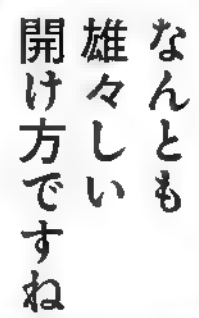 なんとも
雄々しい
開け方ですね